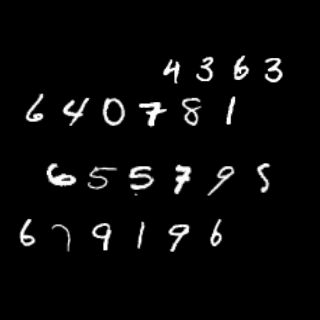 4363
640781
655795
679196